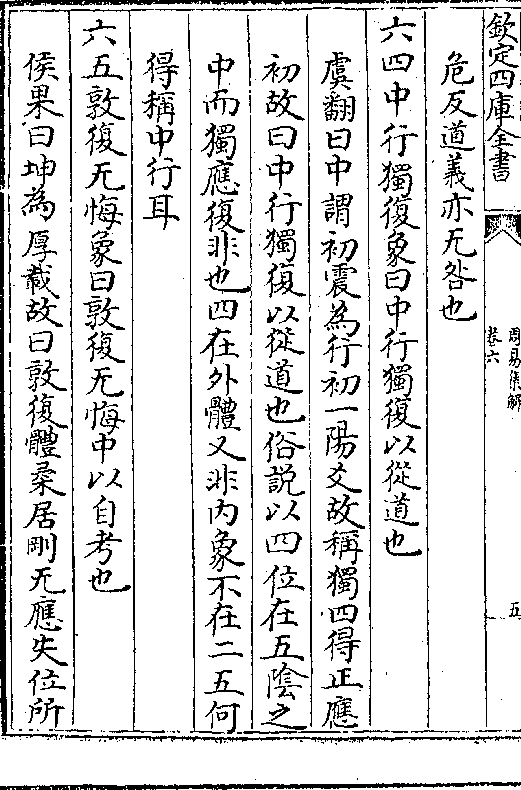 欽定四庫全書
周易集解
卷六
五
危反道義亦无咎也
六四中行獨復象曰中行獨復以從道也
虞翻曰中謂初震為行初一陽爻故稱獨四得正應
初故曰中行獨復以從道也俗説以四位在五陰之
中而獨應復非也四在外體又非内象不在二五何
得稱中行耳
六五敦復无悔象曰敦復无悔中以自考也
侯果曰坤為厚載故曰敦復體柔居剛无應失位所